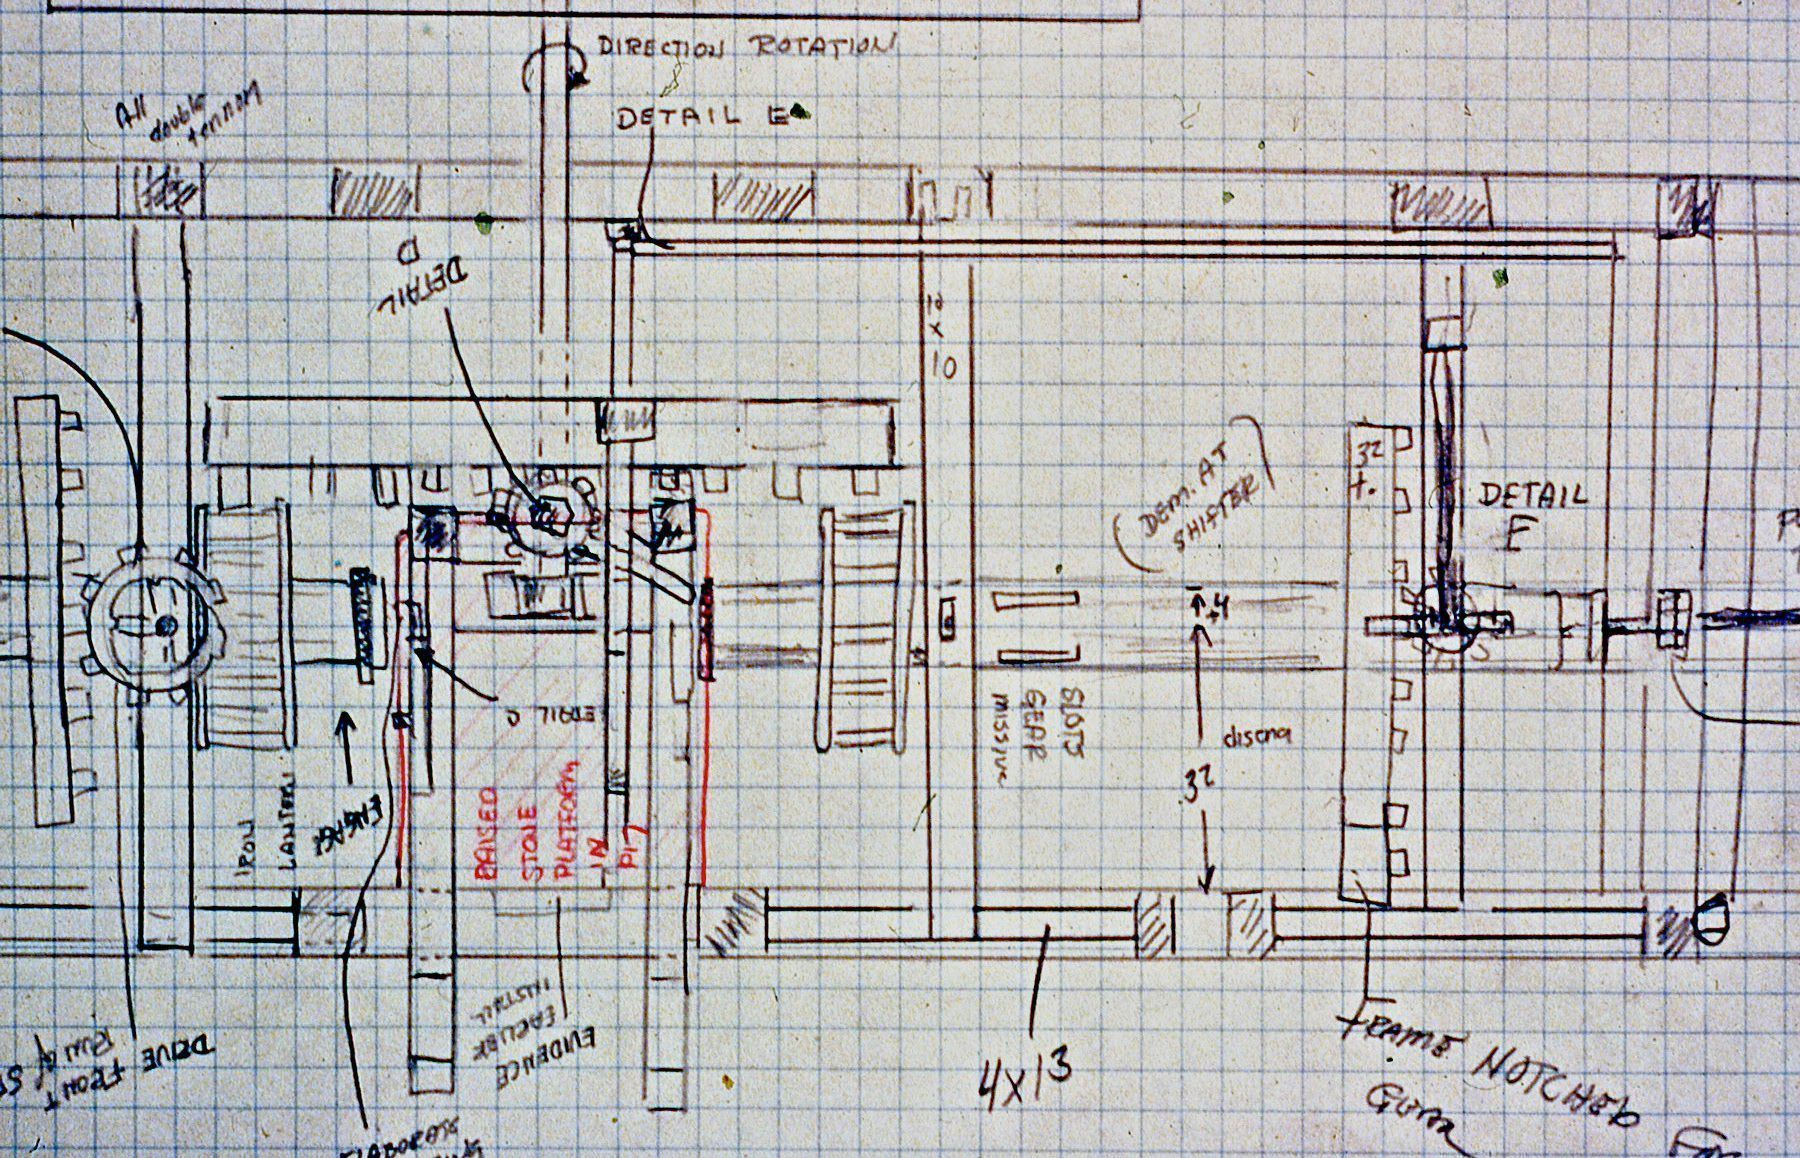 DIRECTION ROTATION
DETAIL E
All
double
tennon
DETAIL
D
12
x
10
DEM. AT
SHIFTER
32
t.
DETAIL
E
SLOTS
GEAR
missing
24
disena
32
ETAIL C
ENGAGE
IRON
LANTERN
RAISED
STONE
PLATFORM
IN
PIT
DRIVE
FRONT
Run of
EVIDENCE
EARLIER
INSTALL
4x13
FRAME NOTCHED
For
Gear
ELABORATE